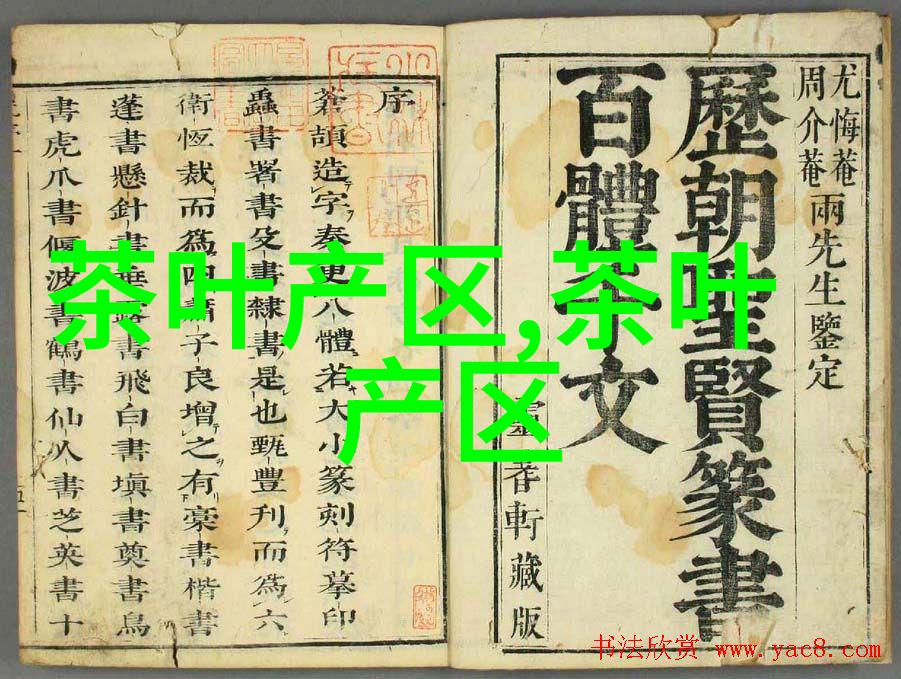 尤悔菴
周介菴
兩先生鑒定
歷朝聖賢篆書
百體千文
霻春軒藏版
序
蒼頡造字秦史八體若大小篆刻符摹印
蟲書署書殳書隸書是也甄豐刊而為六
衛恆裁而為四蕭子良增之有藁書楷書
蓬書懸針書垂露書飛白書塡書奠書鳥
書虎爪書偃波書鶴書仙人書芝英書十
茶叶产区,茶叶
产区
书法欣赏 www.yac8.com